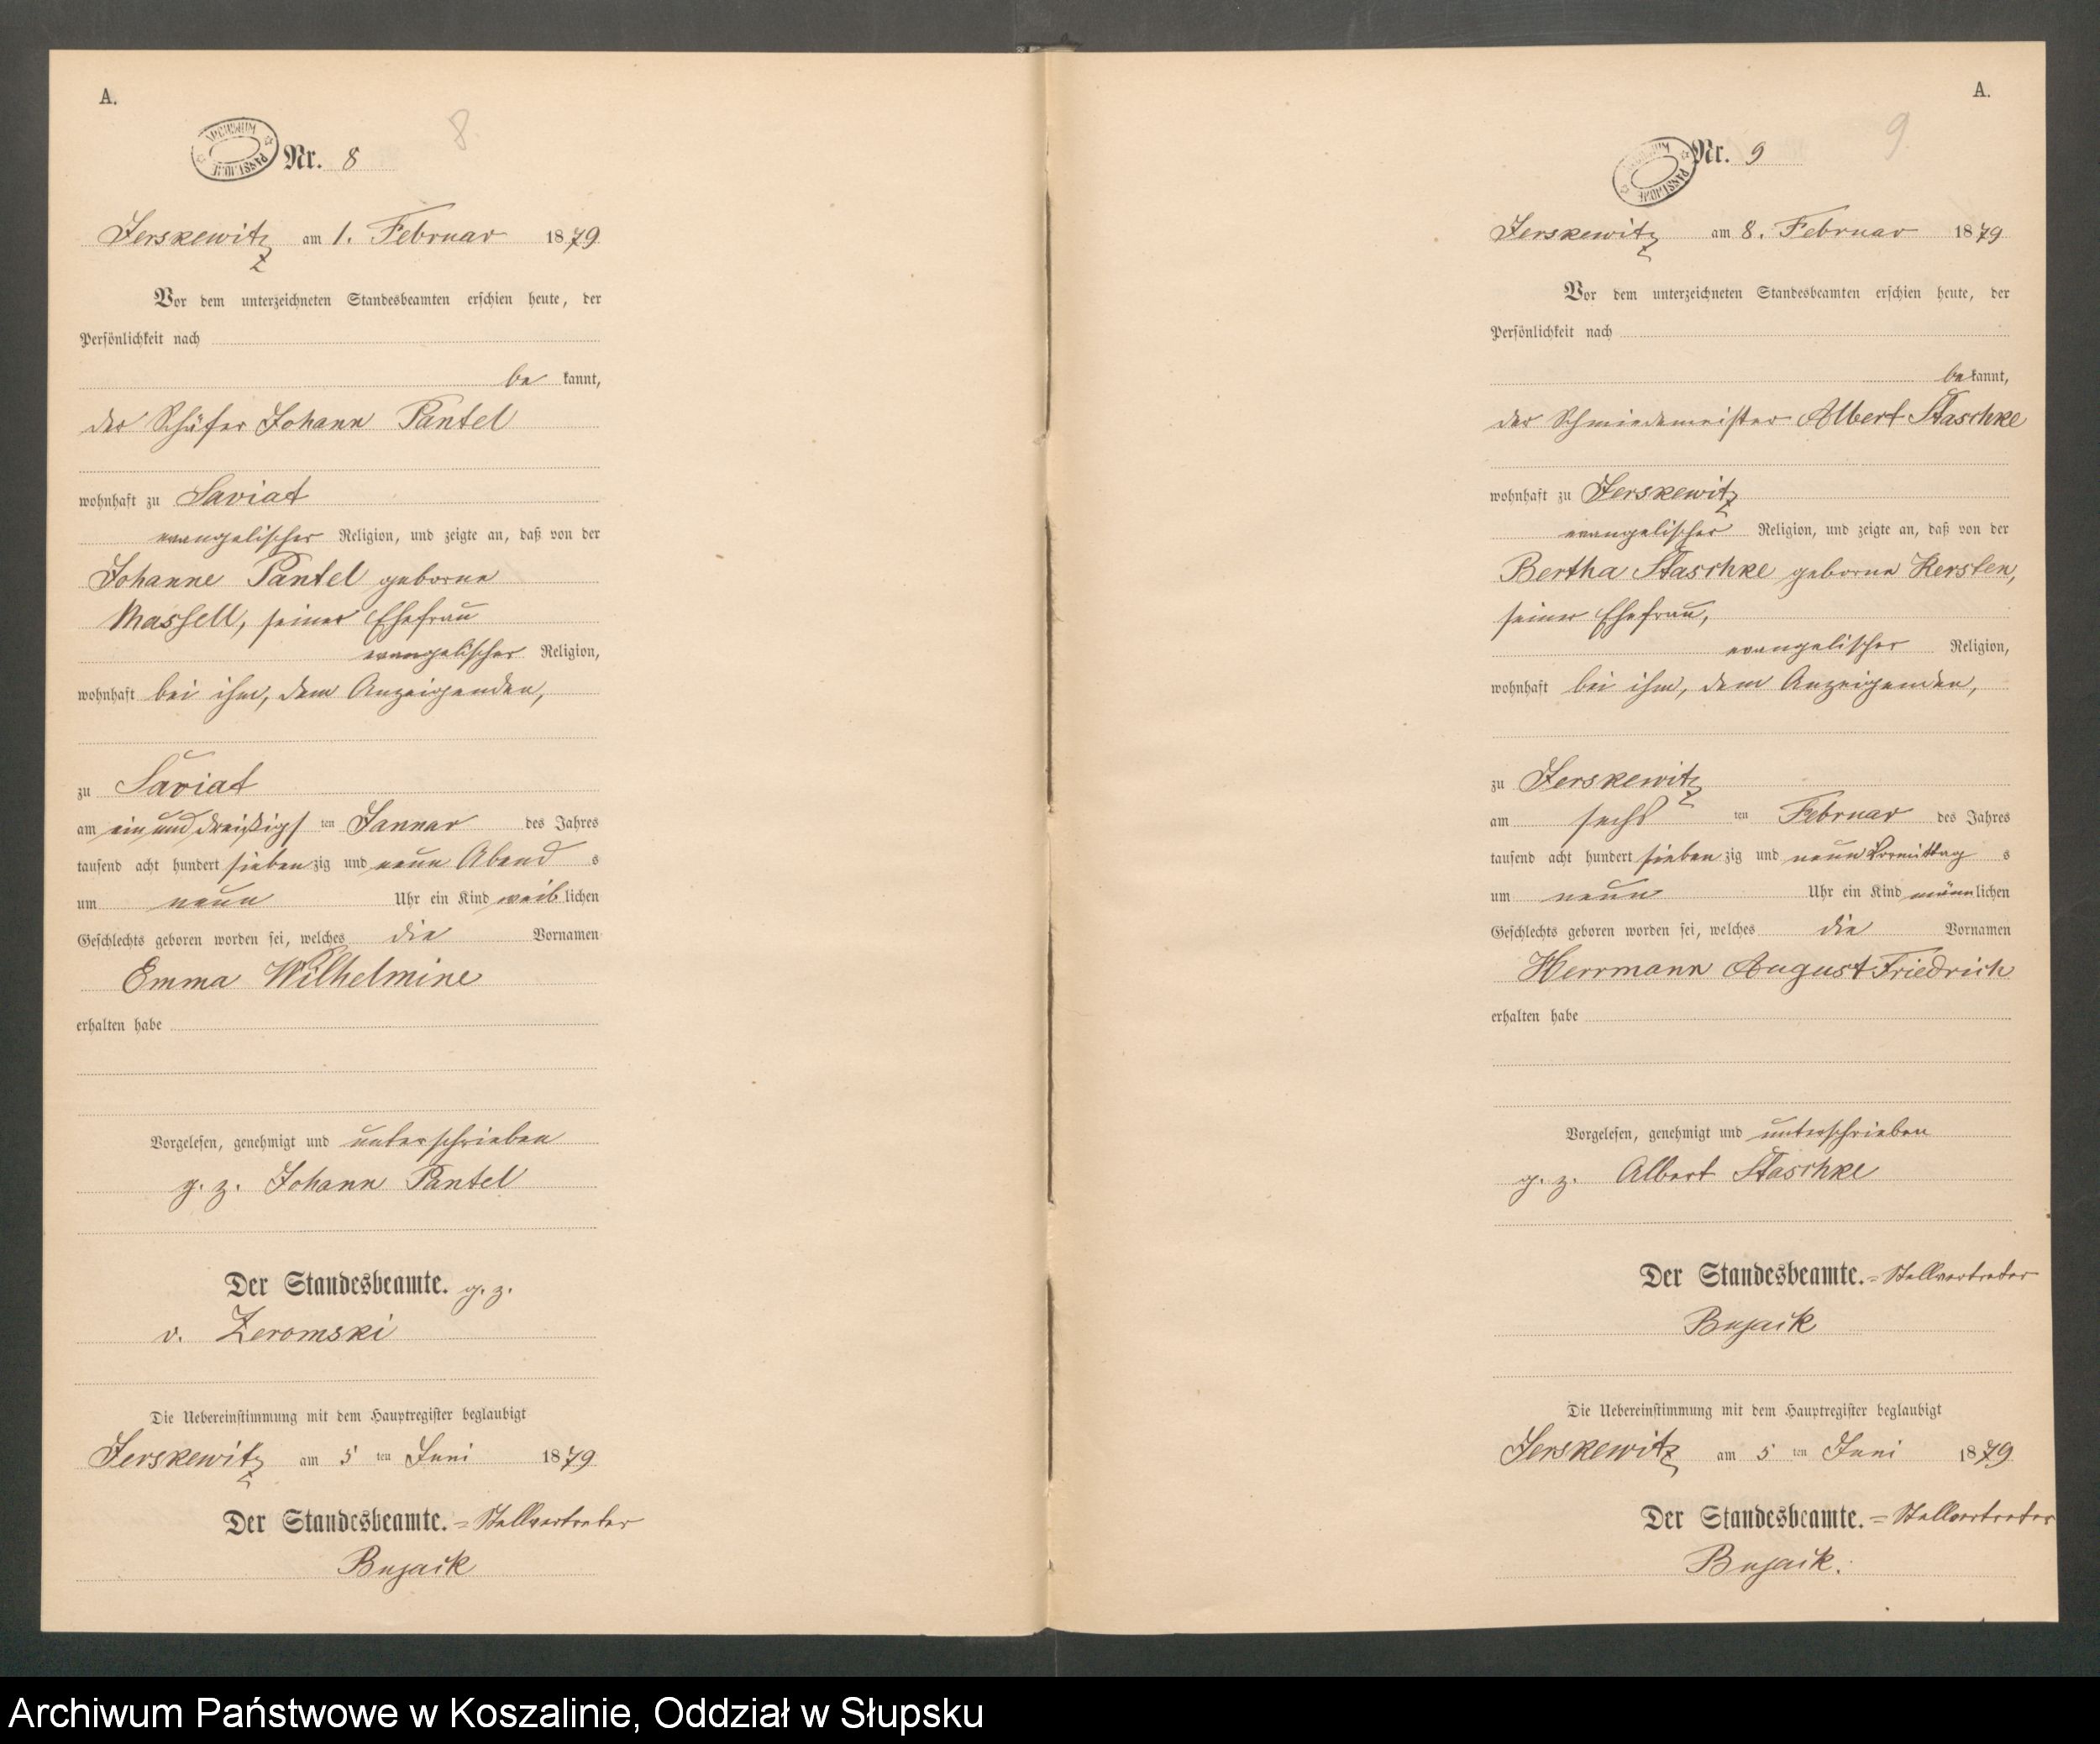 A.
8
ARCHIWUM PAŃSTWOWE
Nr. 8
Jerskewitz am 1. Februar 1879
Vor dem unterzeichneten Standesbeamten erschien heute, der
Persönlichkeit nach
be kannt,
der Schäfer Johann Pantel
wohnhaft zu Saviat
evangelischer Religion, und zeigte an, daß von der
Johanne Pantel geborne
Massell, seiner Ehefrau
evangelischer Religion,
wohnhaft bei ihm, dem Anzeigenden,
zu Saviat
am ein und dreißigs ten Januar des Jahres
tausend acht hundert sieben zig und neun Abend s
um neun Uhr ein Kind weib lichen
Geschlechts geboren worden sei, welches die Vornamen
Emma Wilhelmine
erhalten habe
Vorgelesen, genehmigt und unterschrieben
g. z. Johann Pantel
Der Standesbeamte. g. z.
v. Zeromski
Die Uebereinstimmung mit dem Hauptregister beglaubigt
Jerskewitz am 5 ten Juni 1879
Der Standesbeamte. = Stellvertreter
Bujack
A.
9
ARCHIWUM PAŃSTWOWE
Nr. 9
Jerskewitz am 8. Februar 1879
Vor dem unterzeichneten Standesbeamten erschien heute, der
Persönlichkeit nach
be kannt,
der Schmiedemeister Albert Staschke
wohnhaft zu Jerskewitz
evangelischer Religion, und zeigte an, daß von der
Bertha Staschke geborne Kersten,
seiner Ehefrau,
evangelischer Religion,
wohnhaft bei ihm, dem Anzeigenden,
zu Jerskewitz
am sechs ten Februar des Jahres
tausend acht hundert sieben zig und neun Vormittag s
um neun Uhr ein Kind männ lichen
Geschlechts geboren worden sei, welches die Vornamen
Herrmann August Friedrich
erhalten habe
Vorgelesen, genehmigt und unterschrieben
g. z. Albert Staschke
Der Standesbeamte. = Stellvertreter
Bujack
Die Uebereinstimmung mit dem Hauptregister beglaubigt
Jerskewitz am 5 ten Juni 1879
Der Standesbeamte. = Stellvertreter
Bujack.
Archiwum Państwowe w Koszalinie, Oddział w Słupsku